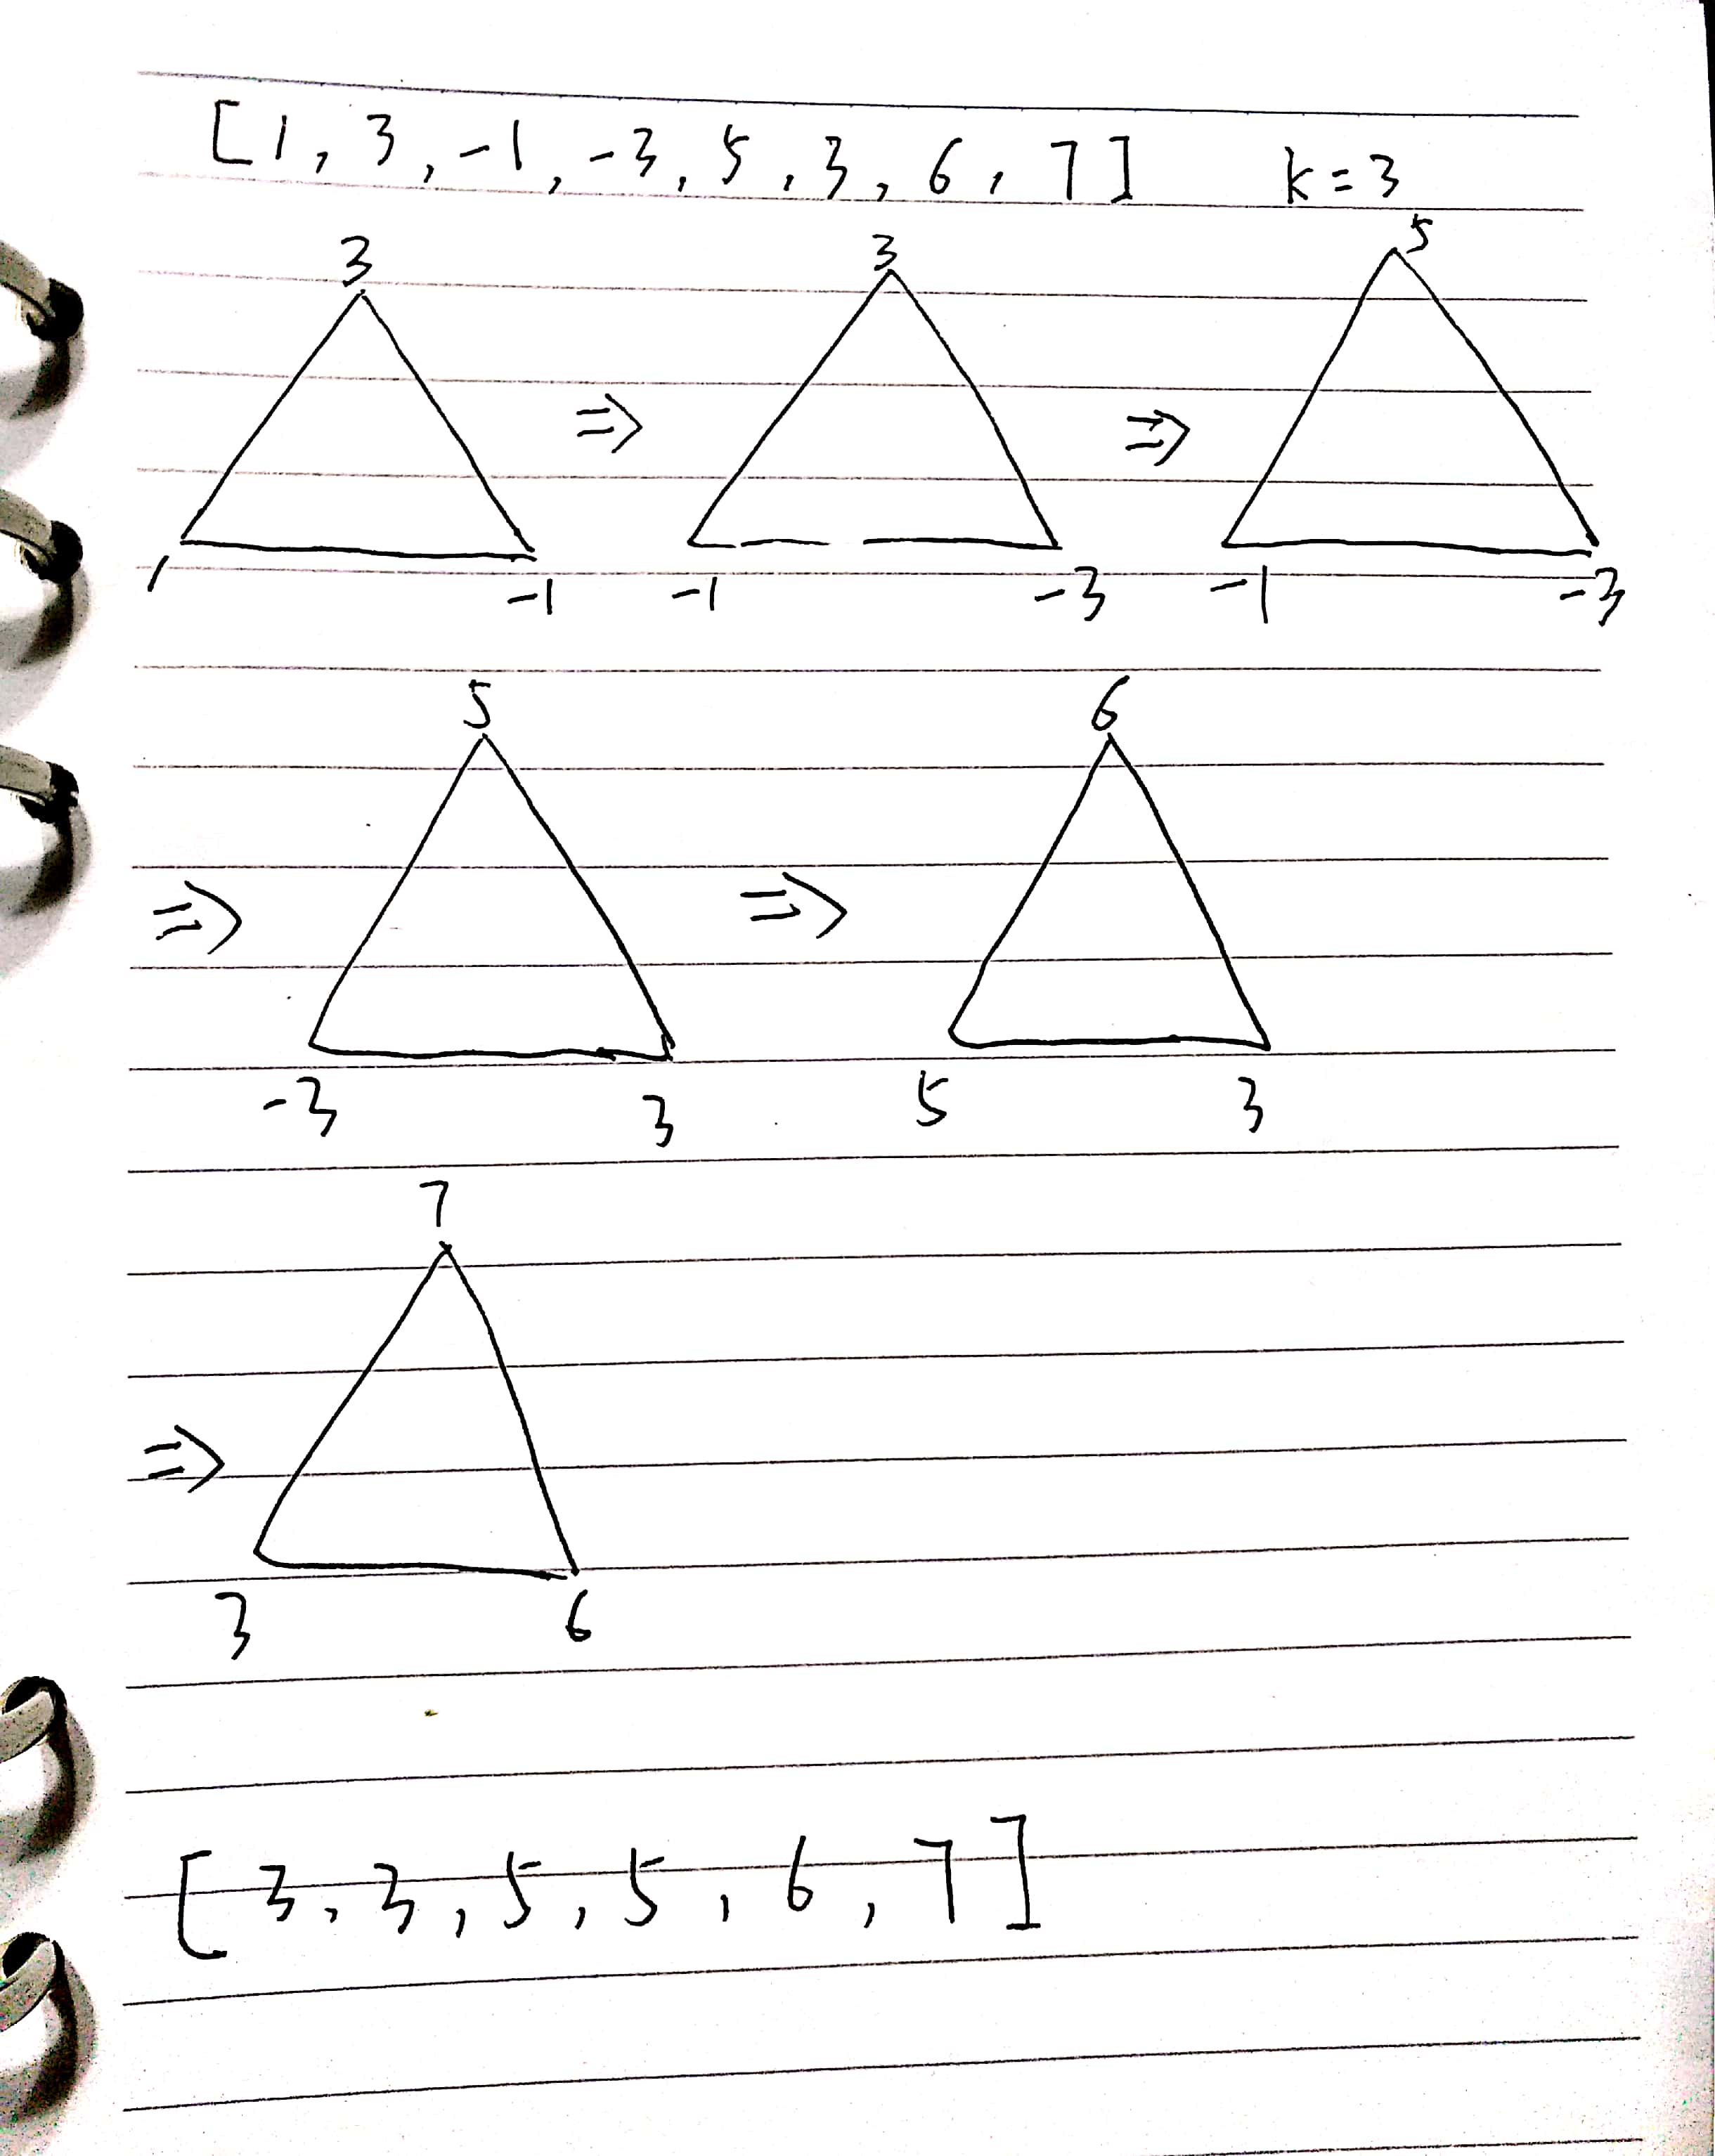 [1, 3, -1, -3, 5, 3, 6, 7] k=3
3 3 5
⇒ ⇒
1 -1 -1 -3 -1 -3
5 6
⇒ ⇒
-3 3 5 3
7
⇒
3 6
[3, 3, 5, 5, 6, 7]